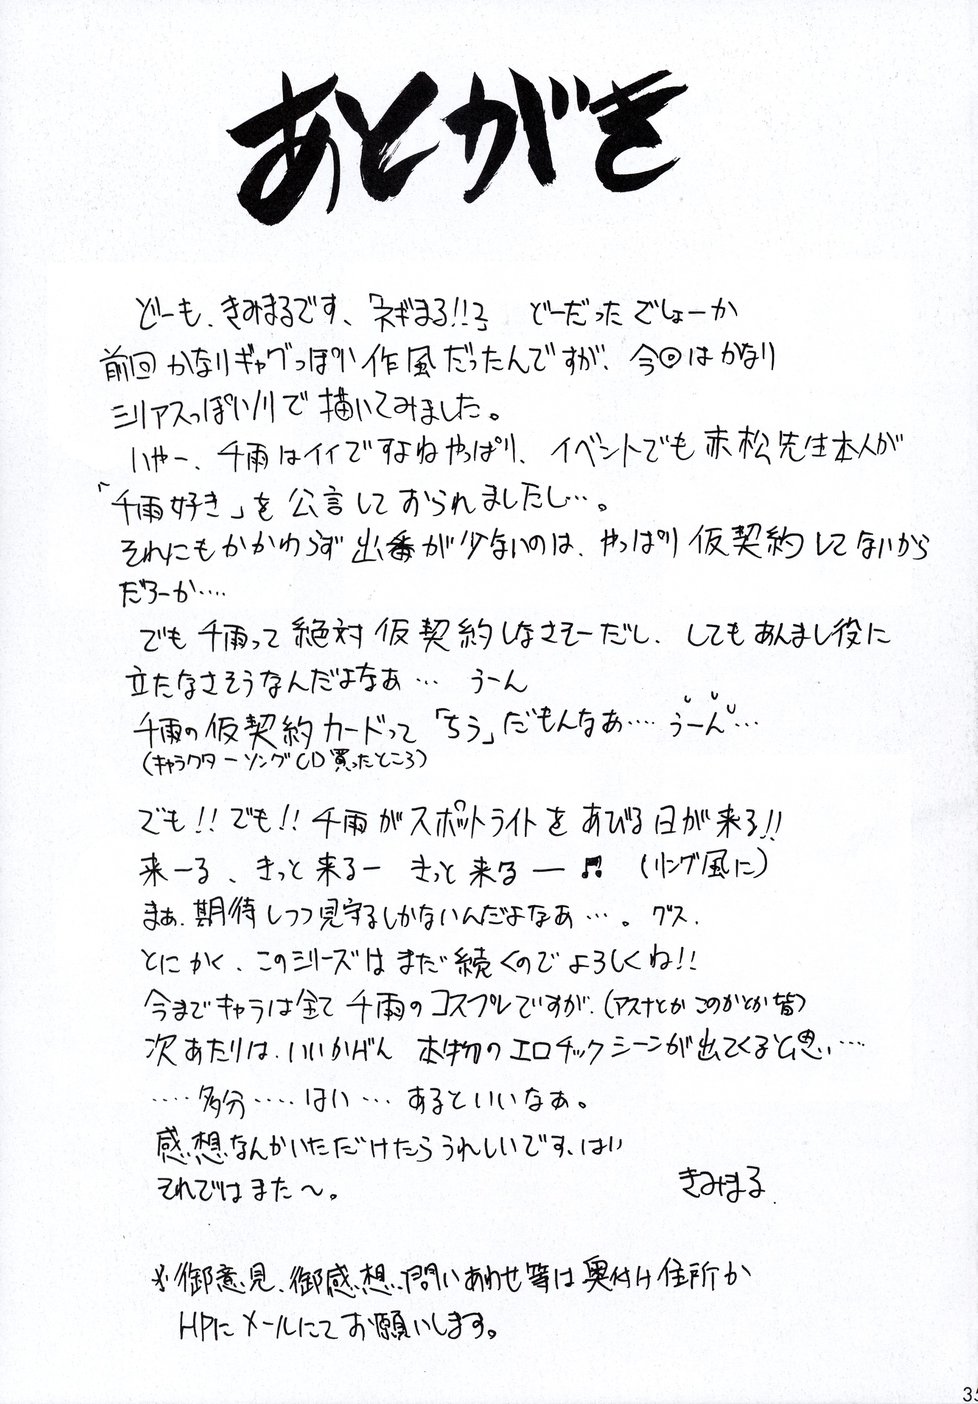 あとがき
どーも、きみまるです、「ネギまる!!2」 どーだったでしょーか
前回かなりギャグっぽい作風だったんですが、今回はかなり
シリアスっぽいノリで描いてみました。
いやー、千雨はイイですよねやっぱり、イベントでも赤松先生本人が
「千雨好き」を公言しておられましたし…。
それにもかかわらず出番が少ないのは、やっぱり仮契約してないから
だろーか‥‥
でも千雨って絶対仮契約しなさそーだし、してもあんまし役に
立たなさそうなんだよなあ… うーん
千雨の仮契約カードって「ちう」だもんなあ‥‥ うーん…
(キャラクターソングCD買ったところ)
でも!!でも!!千雨がスポットライトをあびる日が来る!!
来ーる、きっと来るー きっと来るー♬ (リング風に)
まぁ、期待しつつ見守るしかないんだよなあ…。グス.
とにかく、このシリーズはまだ続くのでよろしくね!!
今までキャラは全て千雨のコスプレですが、(アスナとかこのかとか皆)
次あたりは、いいかげん本物のエロチックシーンが出てくると思い…
‥‥多分‥‥はい…あるといいなぁ。
感想なんかいただけたらうれしいです、はい
それではまた〜。
きみまる
※御意見、御感想、問いあわせ等は奥付け住所か
HPにメールにてお願いします。
35